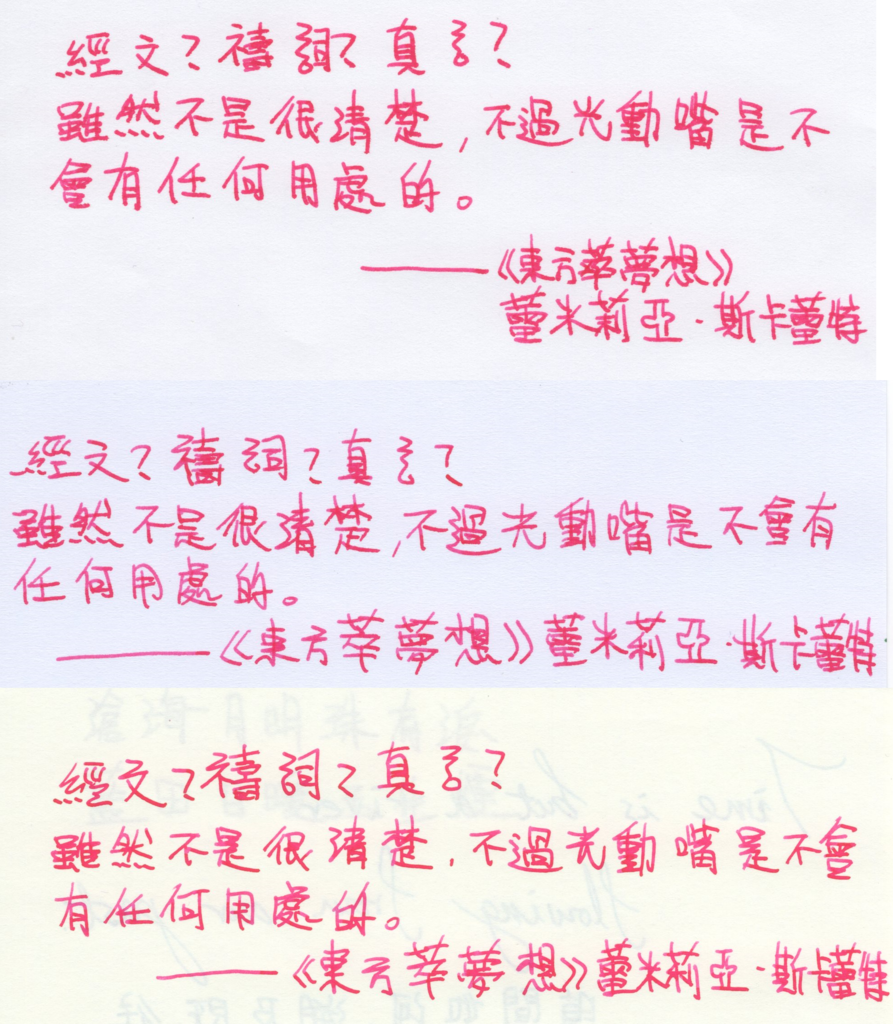 經文？禱詞？真言？
雖然不是很清楚，不過光動嘴是不
會有任何用處的。
——《東方萃夢想》
蕾米莉亞·斯卡蕾特
經文？禱詞？真言？
雖然不是很清楚，不過光動嘴是不會有
任何用處的。
——《東方萃夢想》蕾米莉亞·斯卡蕾特
經文？禱詞？真言？
雖然不是很清楚，不過光動嘴是不會
有任何用處的。
——《東方萃夢想》蕾米莉亞·斯卡蕾特